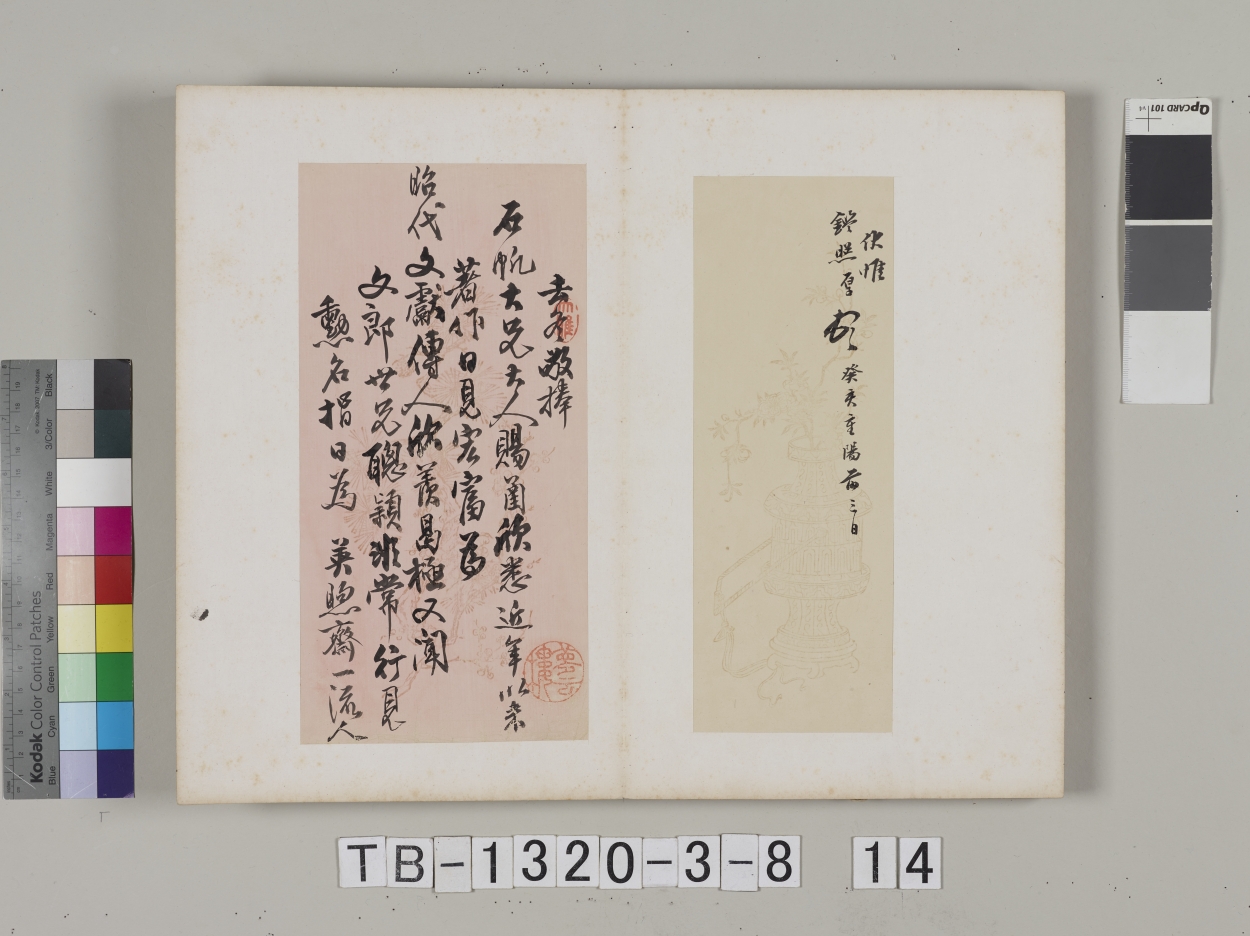 伏惟
鑒照厚
癸亥重陽前三日
去冬敬捧
石帆大兄大人賜圅欣悉近年以來
著作日見宏富為
昭代文獻傳人欽羨曷極又聞
文郎世兄聰穎非常行見
勳名指日為 英煦齋一流人
TB-1320-3-8 14
QPCARD 101 v4
Kodak Color Control Patches
Blue Cyan Green Yellow Red Magenta White 3/Color Black